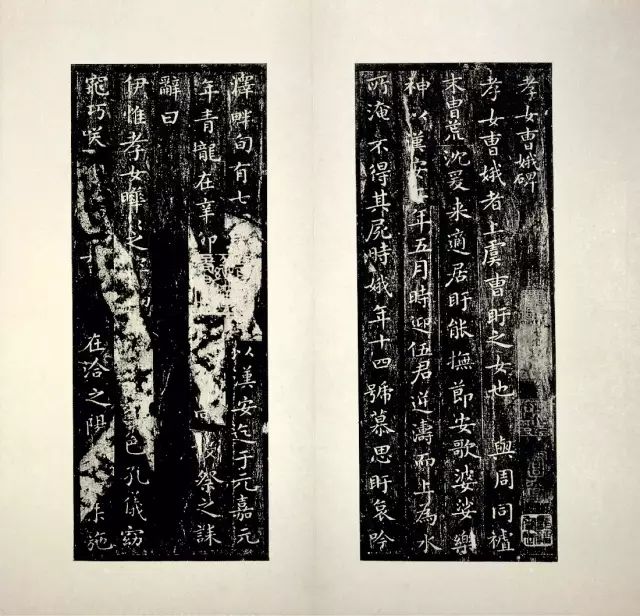 孝女曹娥碑
孝女曹娥者上虞曹盱之女也 與周同
末胄荒沈爰来適居盱能撫節安歌婆娑樂
神以漢安 年五月時迎伍君逆濤而上為水
所淹不得其屍時娥年十四號慕思盱哀吟
澤畔旬有七 以漢安迄于元嘉元
年青龍在辛卯 祭之誄
辭曰
伊惟孝女曄 之 色孔儀窈
窕巧咲 在洽之陽 施